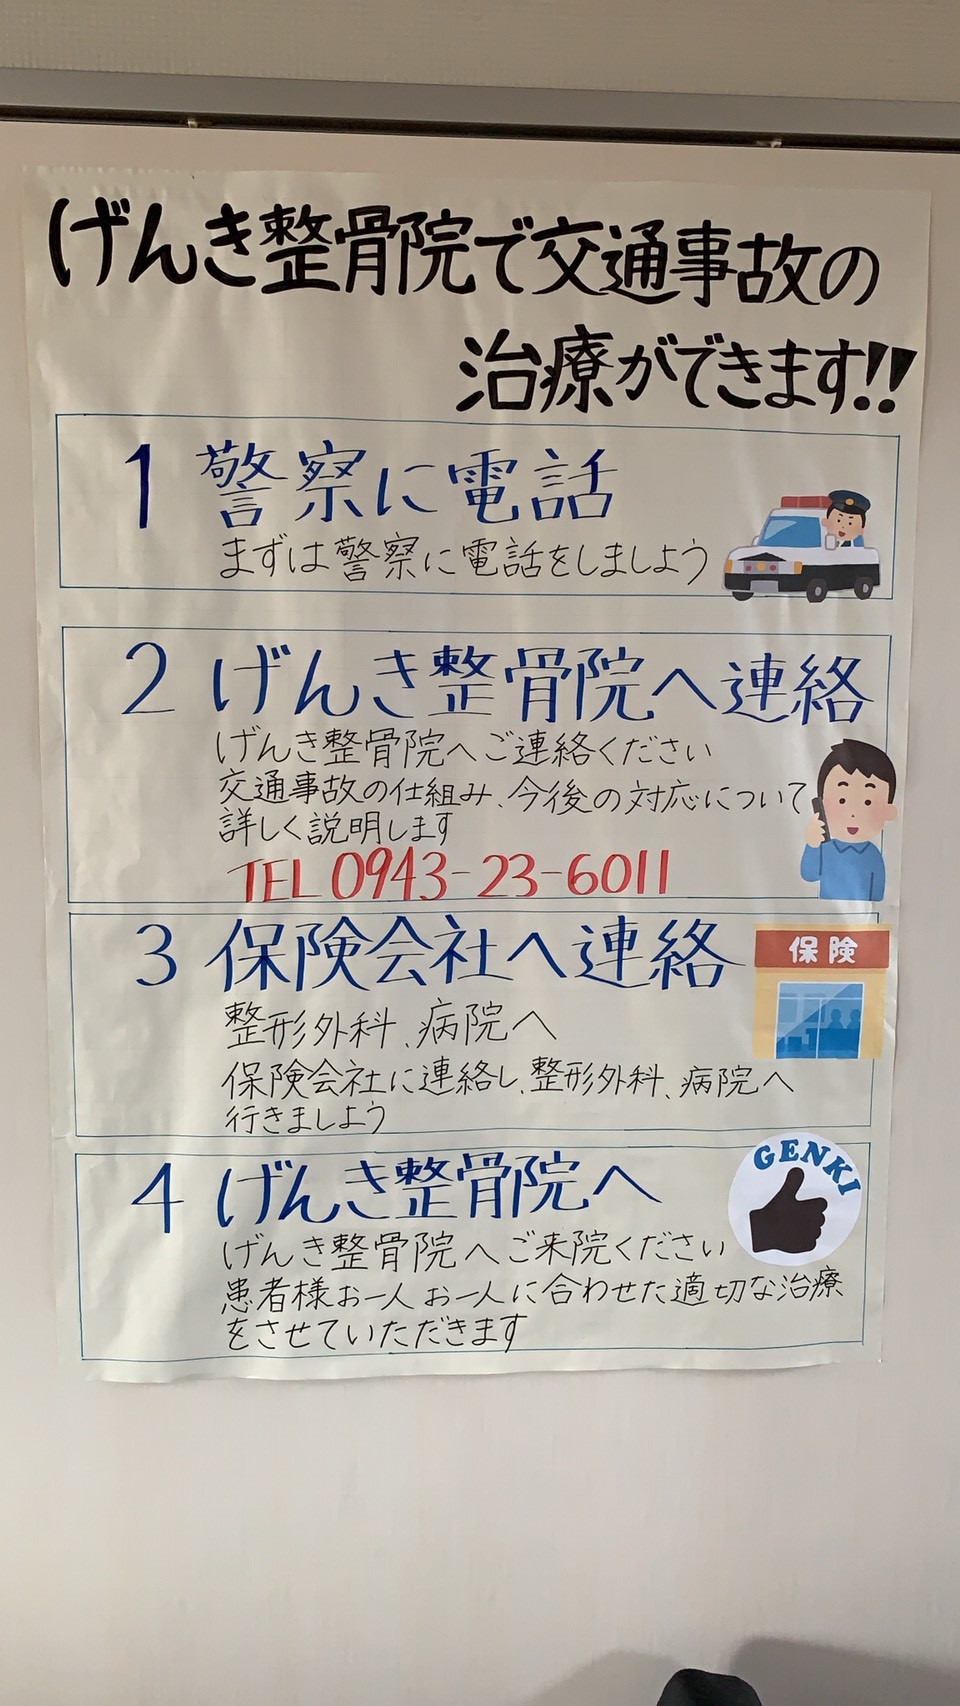 げんき整骨院で交通事故の
治療ができます!!
1 警察に電話
まずは警察に電話をしましよう
2 げんき整骨院へ連絡
げんき整骨院へご連絡ください
交通事故の仕組み、今後の対応について
詳しく説明します
TEL 0943-23-6011
3 保険会社へ連絡
保険
整形外科、病院へ
保険会社に連絡し、整形外科、病院へ
行きましよう
4 げんき整骨院へ
GENKI
げんき整骨院へご来院ください
患者様お一人お一人に合わせた適切な治療
をさせていただきます